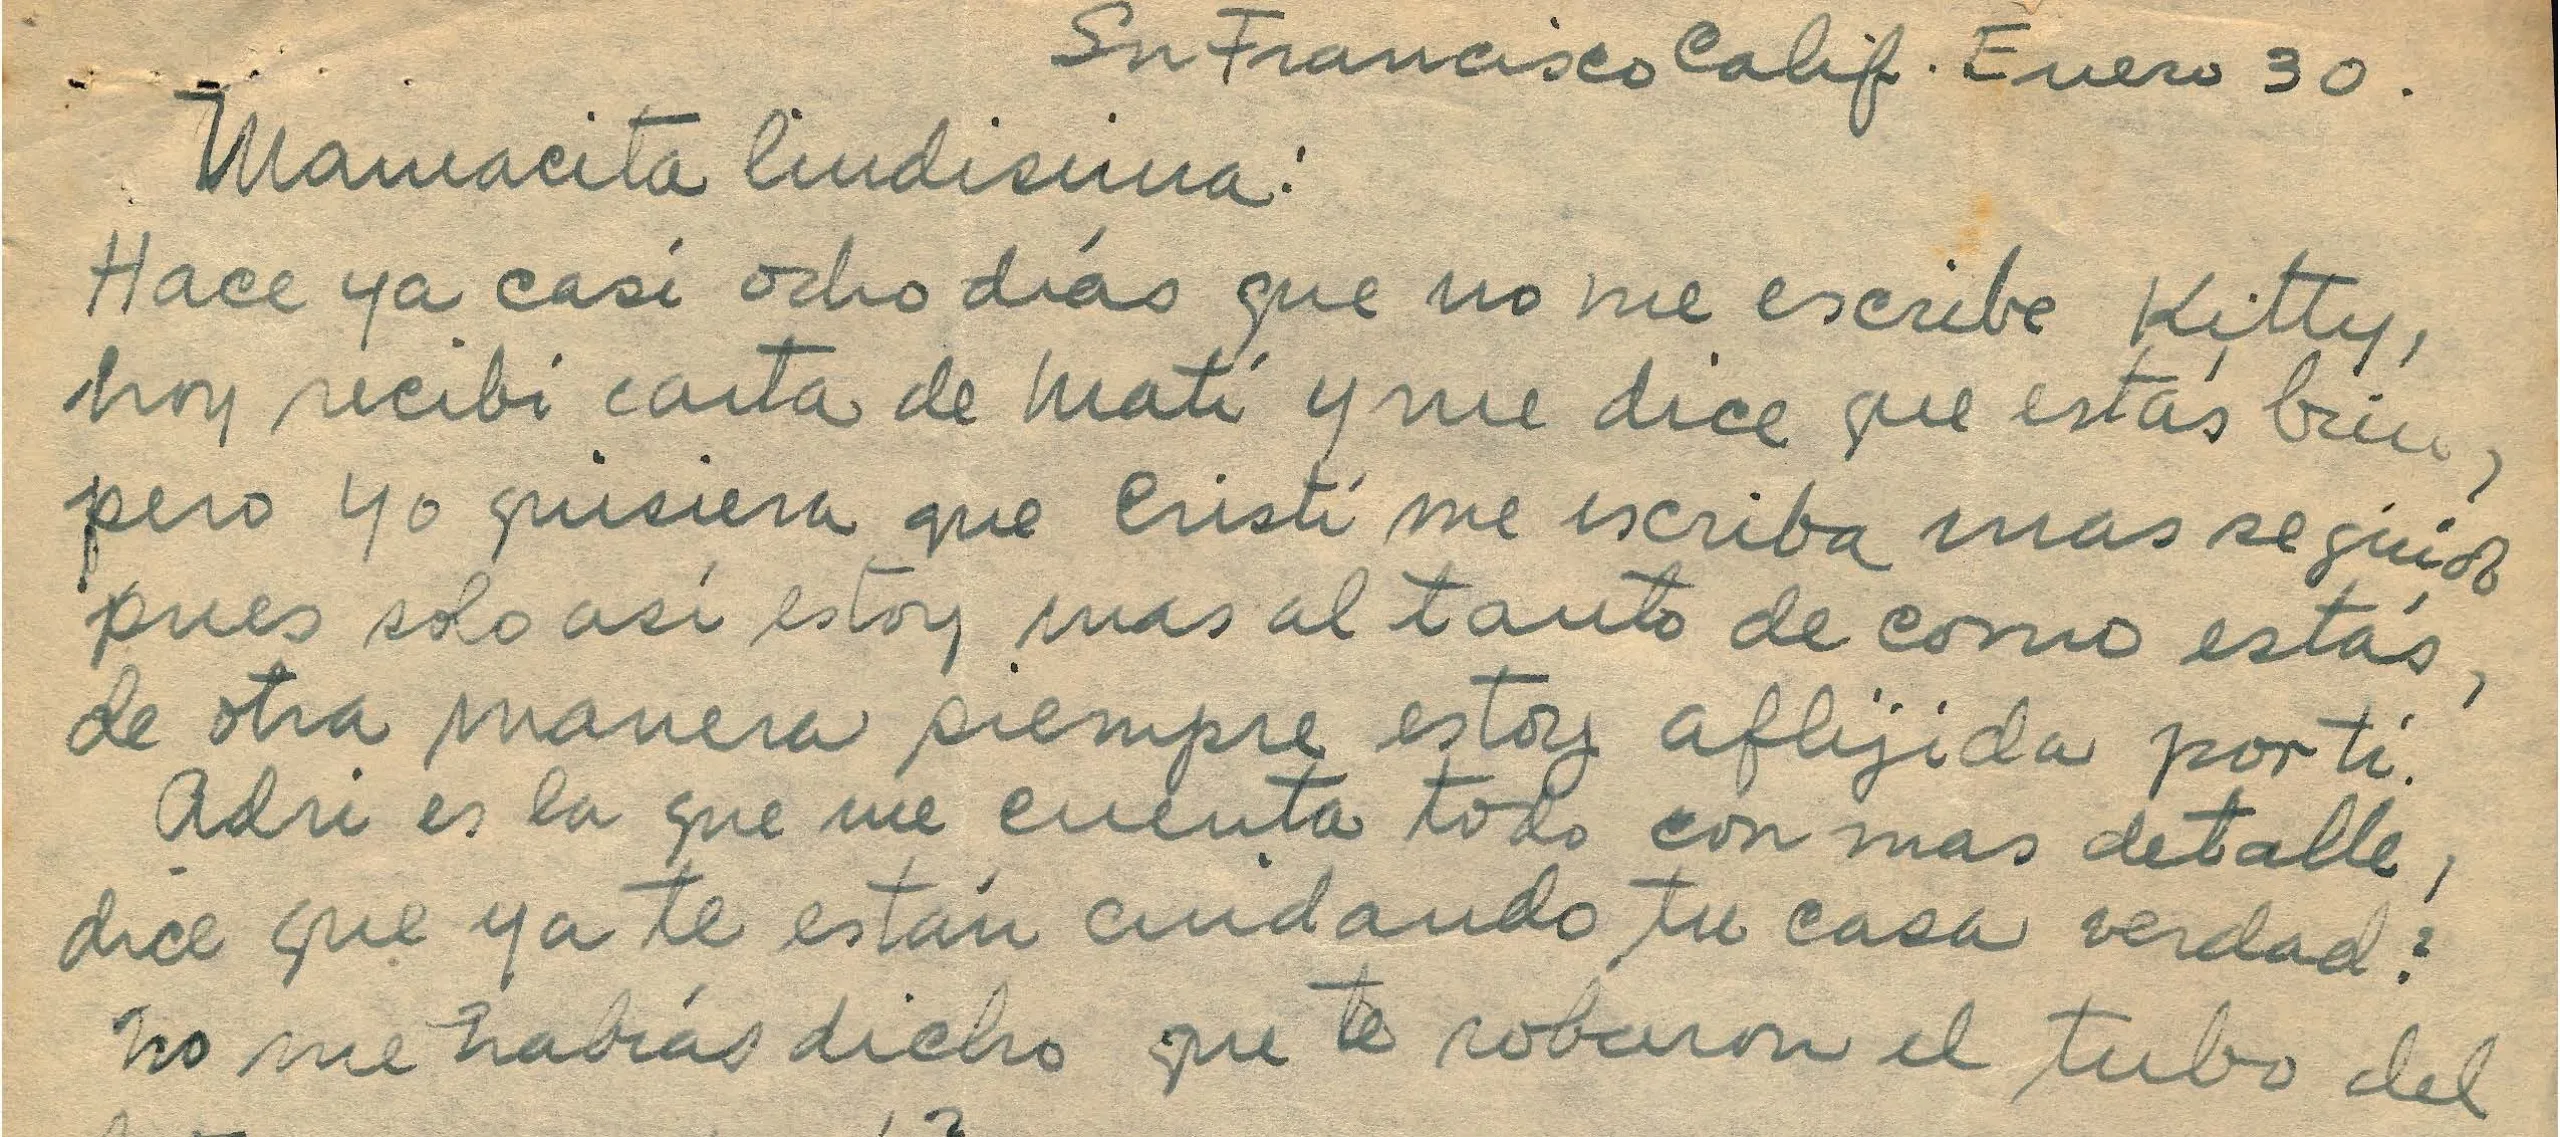 Sn Francisco Calif. Enero 30.
Mamacita lindisima:
Hace ya casí ocho días que no me escribe Kitty,
hoy recibí carta de Matí y me dice que estás bien,
pero yo quisiera que Cristí me escriba mas seguido
pues solo así estoy mas al tanto de como estás,
de otra manera siempre estoy aflijida por tí.
Adri es la que me cuenta todo con mas detalle,
dice que ya te están cuidando tu casa verdad?
no me habías dicho que te robaron el tubo del